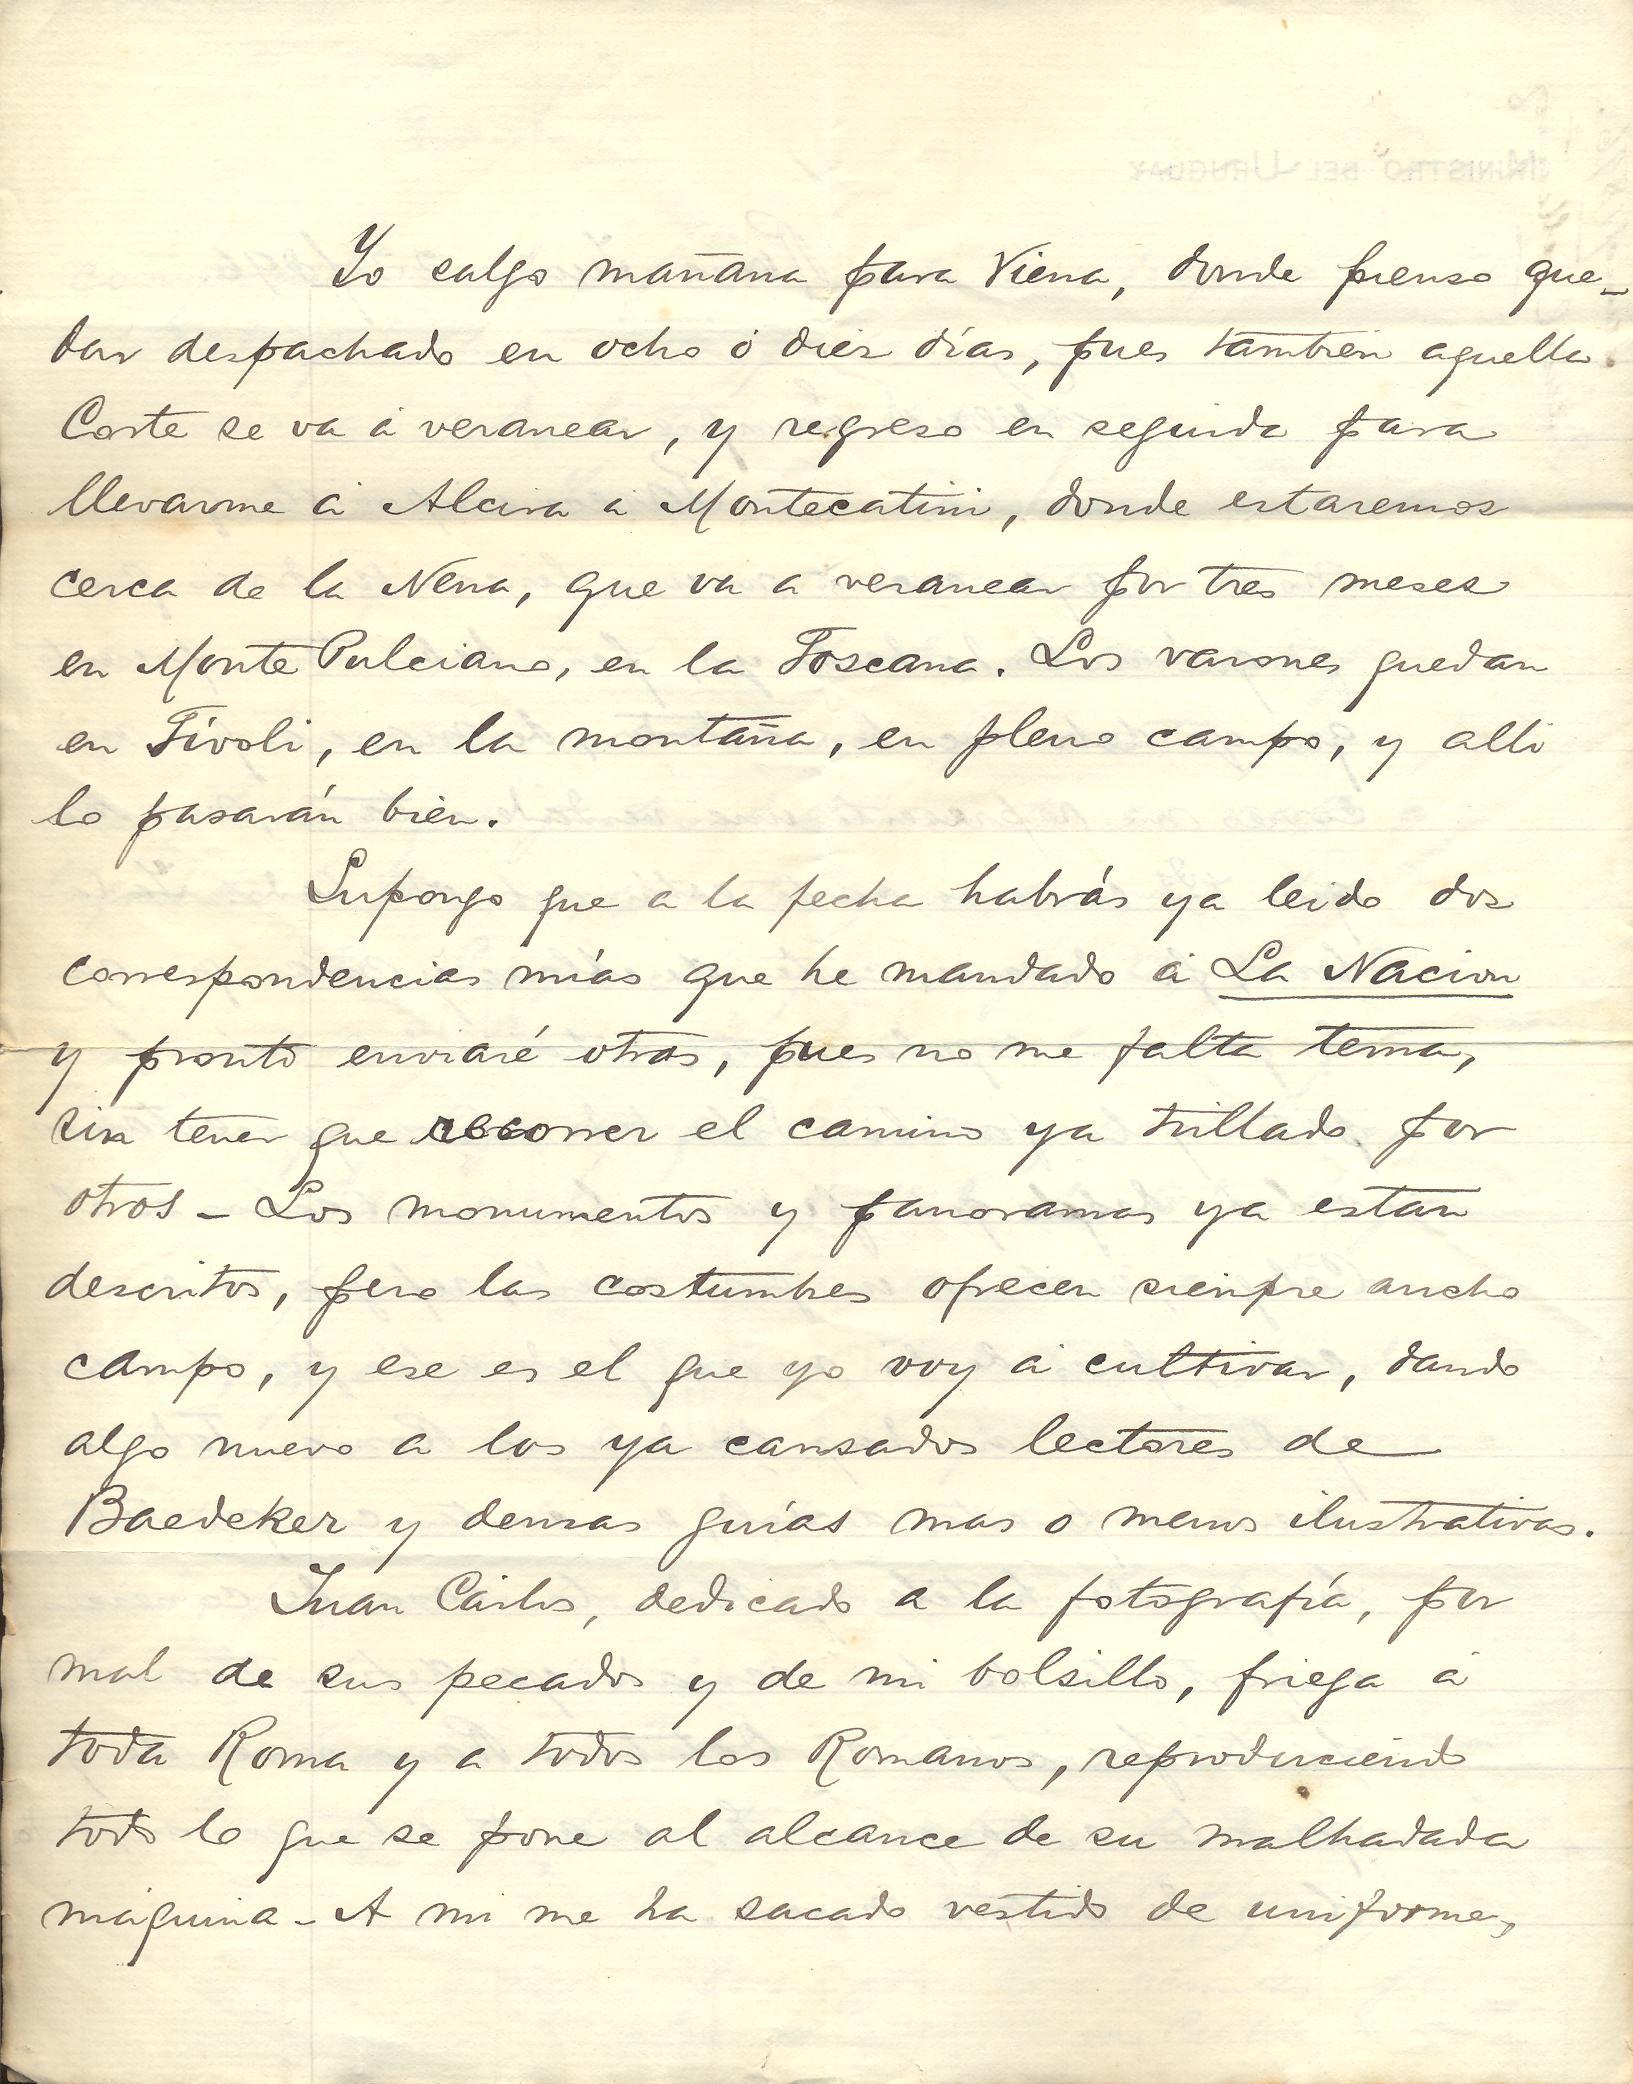 Yo salgo mañana para Viena, donde pienso que-
dar despachado en ocho ó diez días, pues tambien aquella
Corte se va á veranear, y regreso en seguida para
llevarme á Alcira á Montecatini, donde estaremos
cerca de la Nena, que va a veranear por tres meses
en Monte Pulciano, en la Toscana. Los varones quedan
en Tívoli, en la montaña, en pleno campo, y alli
lo pasarán bien.
Supongo que a la fecha habrás ya leido dos
correspondencias mías que he mandado á La Nacion
y pronto enviaré otras, pues no me falta tema,
sin tener que recorrer el camino ya trillado por
otros - Los monumentos y panoramas ya estan
descritos, pero las costumbres ofrecen siempre ancho
campo, y ese es el que yo voy á cultivar, dando
algo nuevo a los ya cansados lectores de
Baedeker y demas guías mas o menos ilustrativas.
Juan Cárlos, dedicado a la fotografía, por
mal de sus pecados y de mi bolsillo, friega á
toda Roma y a todos los Romanos, reproduciendo
todo lo que se pone al alcance de su malhadada
máquina - A mi me ha sacado vestido de uniforme,
MINISTRO DEL URUGUAY